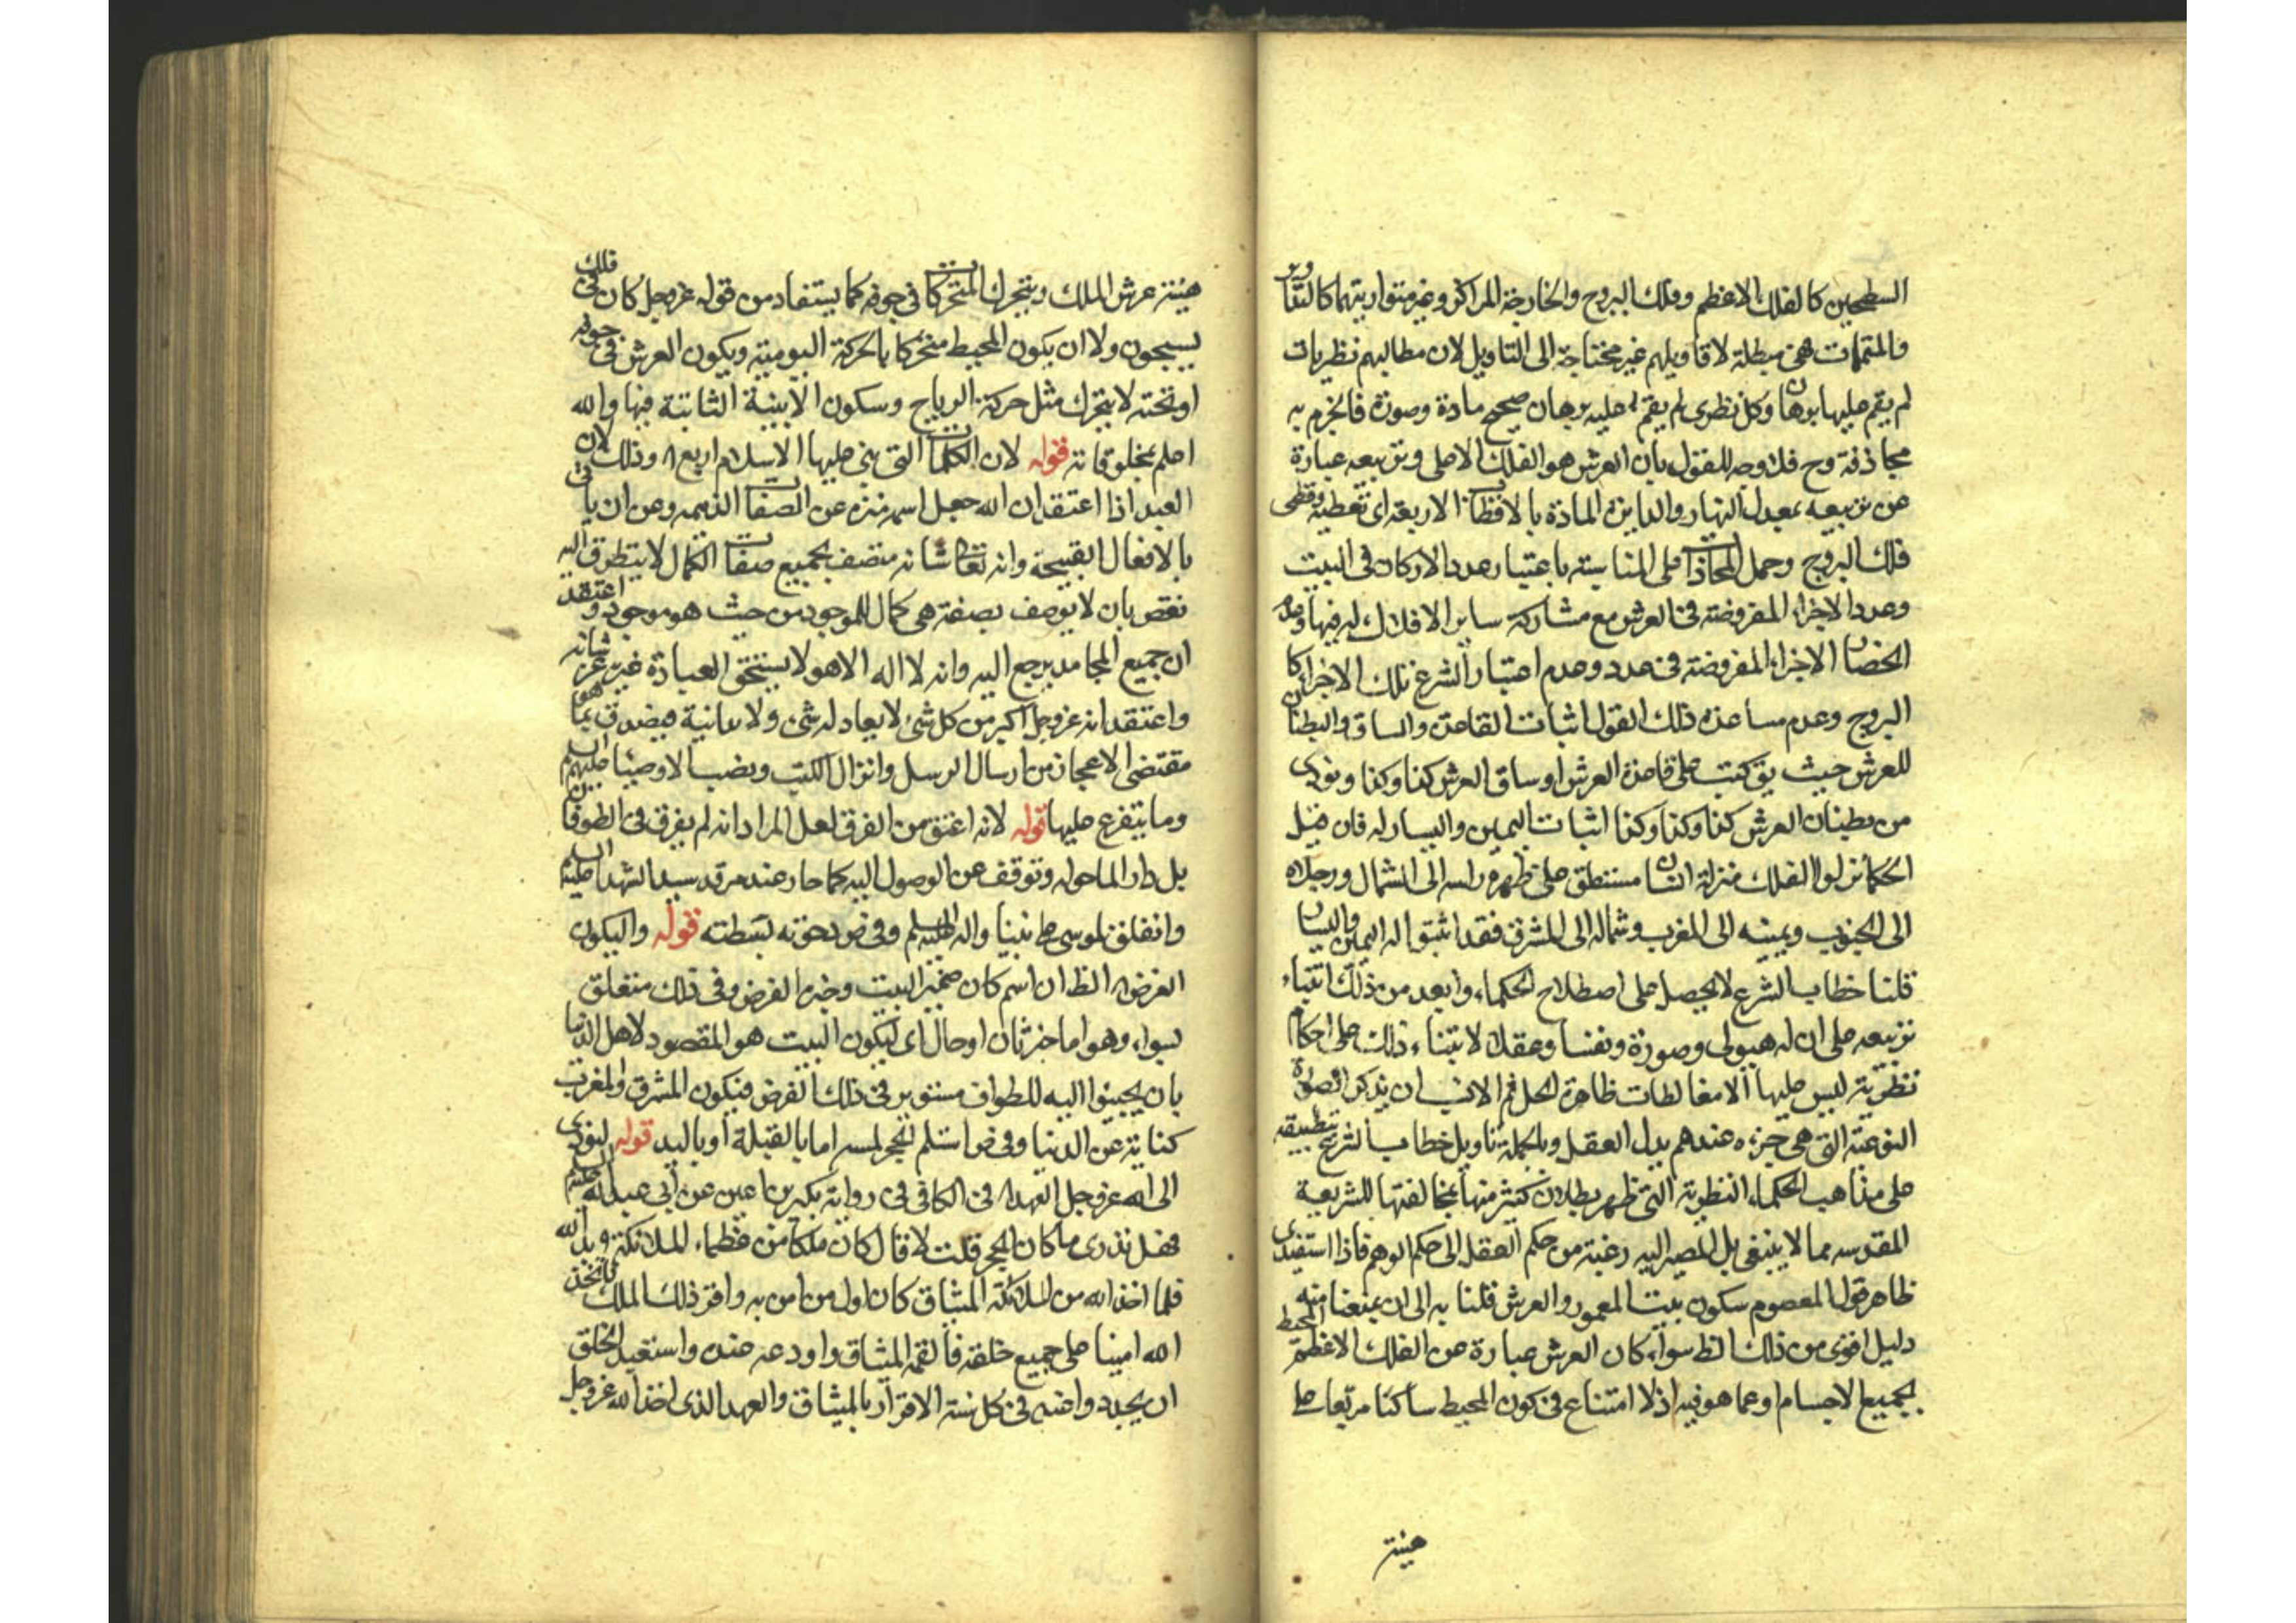 السطحين كالفلك الاعظم وفلك البروج والخارجة المراكز وغير متوازيتهما كالتداوير
والمتممات فهى مبطلة لاقاويلهم غير محتاجة الى التاويل لان مطالبهم نظريات
لم يقم عليها برهان وكل نظرى لم يقم عليه برهان صحيح مادة وصورة فالجزم به
مجازفة وح فلا وجه للقول بان العرش هو الفلك الاعلى وتربيعه عبارة
عن تربيعه بمعدل النهار والدايرة المارة بالاقطاب الاربعة اى قطبيه وقطبى
فلك البروج وحمل المحاذات على المناسبة باعتبار عدد الاركان فى البيت
وعدد الاجزاء المفروضة فى العرش مع مشاركة ساير الافلاك له فيها وعدم
انحصار الاجزاء المفروضة فى عدد وعدم اعتبار الشرع تلك الاجزاء كا
البروج وعدم مساعدة ذلك القول اثبات القاعدة والساق والبطنان
للعرش حيث يق كتب على قاعدة العرش او ساق العرش كذا وكذا ونودى
من بطنان العرش كذا وكذا وكذا اثبات اليمين واليسار له فان قيل
الحكما نزلوا الفلك منزلة انسان مستلق على ظهره راسه الى الشمال ورجلاه
الى الجنوب ويمينه الى المغرب وشماله الى المشرق فقد اثبتوا له اليمين واليسار
قلنا خطاب الشرع لا يحصل على اصطلاح الحكماء وابعد من ذلك ابتناء
تربيعه على ان له هيولى وصورة ونفسا وعقلا لابتناء ذلك على احكام
نظرية ليس عليها الا مغالطات ظاهرة الحل ثم الانسب ان يذكر الصورة
النوعية التى هى جزءه عندهم بدل العقل وبالجملة تاويل خطاب الشرع بتطبيقه
على مذاهب الحكماء النظرية التى ظهر بطلان كثير منها بمخالفتها للشريعة
المقدسه مما لا ينبغى بل المصير اليه رغبة من حكم العقل الى حكم الوهم فاذا استفيد من
ظاهر قول المعصوم سكون بيت المعمور والعرش قلنا به الى ان يمنعنا منه
دليل اقوى من ذلك الظ سواء كان العرش عبارة عن الفلك الاعظم المحيط
بجميع الاجسام او عما هو فيه اذ لا امتناع فى كون المحيط ساكنا مربعا على
هيئة
هيئة عرش الملك ويتحرك المتحركات فى جوفه كما يستفاد من قوله عز وجل كل فى فلك
يسبحون ولا ان يكون المحيط متحركا بالحركة اليومية ويكون العرش فى جوفه
او تحته لا يتحرك مثل حركة الرياح وسكون الابنية الثابتة فيها والله
اعلم بمخلوقاته قوله لان الكلمات التى بنى عليها الاسلام اربع ا٥ وذلك لان
العبد اذا اعتقد ان الله جعل اسمه منزه عن الصفات الذميمه وعن ان ياتى
بالافعال القبيحة وانه تعالى شانه متصف بجميع صفات الكمال لا يتطرق اليه
نقص بان لا يوصف بصفة هى كمال للموجود من حيث هو موجود واعتقد
ان جميع المحامد يرجع اليه وانه لا اله الا هو لا يستحق العبادة غيره عز شانه
واعتقد انه عز وجل اكبر من كل شئ لا يعادله شئ ولا يدانيه فيصدق بما هو
مقتضى الاعجاز من ارسال الرسل وانزال الكتب ونصب الاوصياء عليهم السلم
وما يتفرع عليها قوله لانه اعتق من الغرق لعل المراد انه لم يغرق فى الطوفان
بل دار الماء حوله وتوقف عن الوصول اليه كما حار عند مرقد سيد الشهداء عليه السلم
وانفلق لموسى على نبينا واله وعليه السلم وفى ض دحوته بسطته قوله وليكون
الغرض ا٥ الظ ان اسم كان ضمير البيت وخبره الفرض وفى ذلك متعلق
بسواء وهو اما خبر ثان او حال اى ليكون البيت هو المقصود لاهل الدنيا
بان يجيئوا اليه للطواف مستوين فى ذلك الفرض فيكون المشرق والمغرب
كناية عن الدنيا وفى ض استلم الحجر لمسه اما بالقبلة او باليد قوله ليؤدى
الى الله عز وجل العهد ا٥ فى الكافى فى رواية بكير بن اعين عن ابى عبد الله عليه السلم
فهل تدرى ما كان الحجر قلت لا قال كان ملكا من عظماء الملائكة عند الله
فلما اخذ الله من الملائكة الميثاق كان اول من امن به واقر ذلك الملك فاتخذه
الله امينا على جميع خلقه فالقمه الميثاق واودعه عنده واستعبد الخلق
ان يجددوا عنده فى كل سنة الاقرار بالميثاق والعهد الذى اخذ الله عز وجل